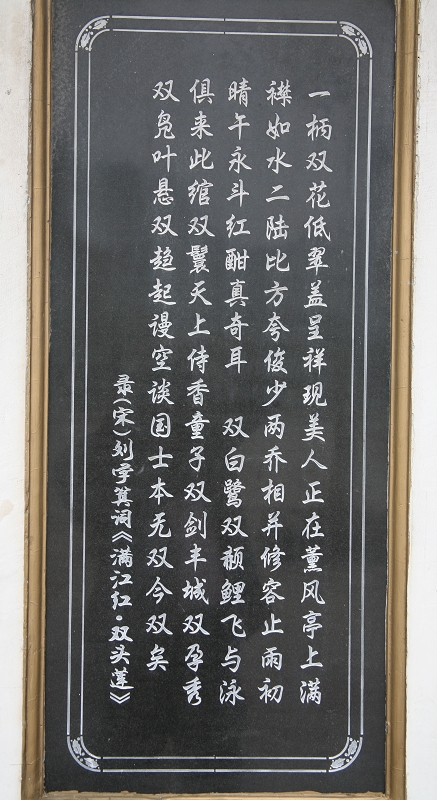 一柄双花低翠盖呈祥现美人正在薰风亭上满
襟如水二陆比方夸俊少两乔相并修容止雨初
晴午永斗红酣真奇耳 双白鹭双颡鲤飞与泳
俱来此绾双鬟天上侍香童子双剑丰城双孕秀
双凫叶悬双趋起谩空谈国士本无双今双矣
录(宋)刘学箕词《满江红·双头莲》